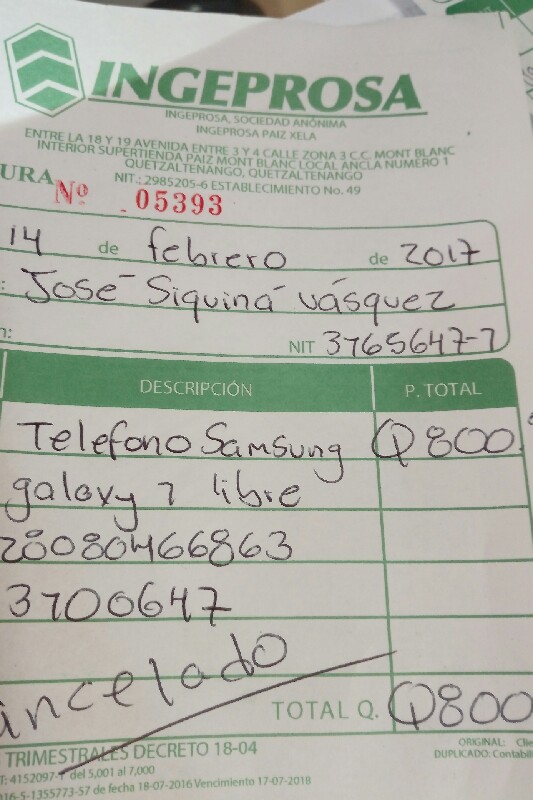 INGEPROSA
INGEPROSA, SOCIEDAD ANÓNIMA
INGEPROSA PAIZ XELA
ENTRE LA 18 Y 19 AVENIDA ENTRE 3 Y 4 CALLE ZONA 3 C.C. MONT BLANC
INTERIOR SUPERTIENDA PAIZ MONT BLANC LOCAL ANCLA NUMERO 1
QUETZALTENANGO, QUETZALTENANGO
NIT.: 2985205-6 ESTABLECIMIENTO No. 49
URA Nº 05393
14 de febrero de 2017
: José Siquiná Vásquez
n: NIT 3765647-7
DESCRIPCIÓN P. TOTAL
Telefono Samsung Q800
galaxy 7 libre
28080466863
3700647
ncelado
TOTAL Q. Q800
TRIMESTRALES DECRETO 18-04
ORIGINAL: Clie
T: 4152097-1 del 5,001 al 7,000
DUPLICADO: Contabil
016-5-1355773-57 de fecha 18-07-2016 Vencimiento 17-07-2018